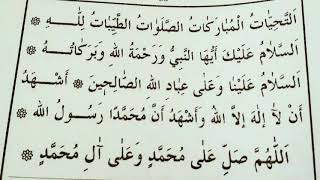 اَلتَّحِيَّاتُ الْمُبَارَكَاتُ الصَّلَوَاتُ الطَّيِّبَاتُ لِلّٰهِ ۞
اَلسَّلَامُ عَلَيْكَ أَيُّهَا النَّبِيُّ وَرَحْمَةُ اللهِ وَبَرَكَاتُهُ ۞
اَلسَّلَامُ عَلَيْنَا وَعَلَى عِبَادِ اللهِ الصَّالِحِينَ ۞ أَشْهَدُ
أَنْ لَا إِلٰهَ إِلَّا اللهُ وَأَشْهَدُ أَنَّ مُحَمَّدًا رَسُولُ اللهِ ۞
اَللّٰهُمَّ صَلِّ عَلَى مُحَمَّدٍ وَعَلَى آلِ مُحَمَّدٍ